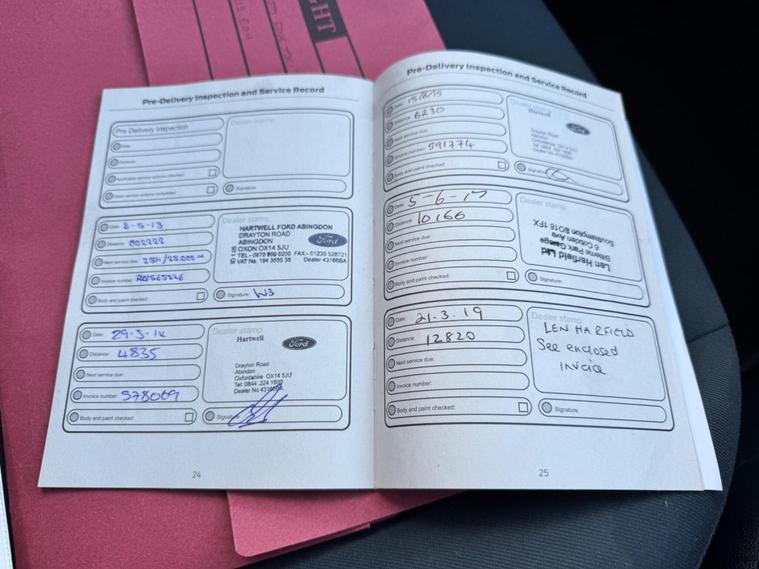 Pre-Delivery Inspection and Service Record
Pre Delivery Inspection
Date:
Distance:
Applicable service actions checked:
Open service actions completed:
Dealer stamp
Signature:
Date: 2-5-13
Distance: 002222
Next service due:
Invoice number:
Body and paint checked:
Dealer stamp
HARTWELL FORD ABINGDON
DRAYTON ROAD
ABINGDON
OXON OX14 5JU
TEL - 0870 909 6200 FAX - 01235 528721
VAT No. 194 3555 38 Dealer 43166BA
Ford
Signature:
Date: 29-3-14
Distance: 4835
Next service due:
Invoice number: 578069
Body and paint checked:
Dealer stamp
Hartwell
Ford
Drayton Road
Abindon
Oxfordshire OX14 5JU
Tel: 0844 324 1899
Dealer No 43166BA
Signature:
24
Pre-Delivery Inspection and Service Record
Date:
Distance: 6230
Next service due:
Invoice number: 591774
Body and paint checked:
Dealer stamp
Hartwell
Ford
Drayton Road
Signature:
Date: 5-6-17
Distance: 10166
Next service due:
Invoice number:
Body and paint checked:
Dealer stamp
Len Harfield Ltd
Bitterne Park Garage
6 Cobden Ave
Southampton SO18 1FX
Signature:
Date: 21-3-19
Distance: 12820
Next service due:
Invoice number:
Body and paint checked:
Dealer stamp
LEN HARFIELD
See enclosed
invoice
Signature:
25